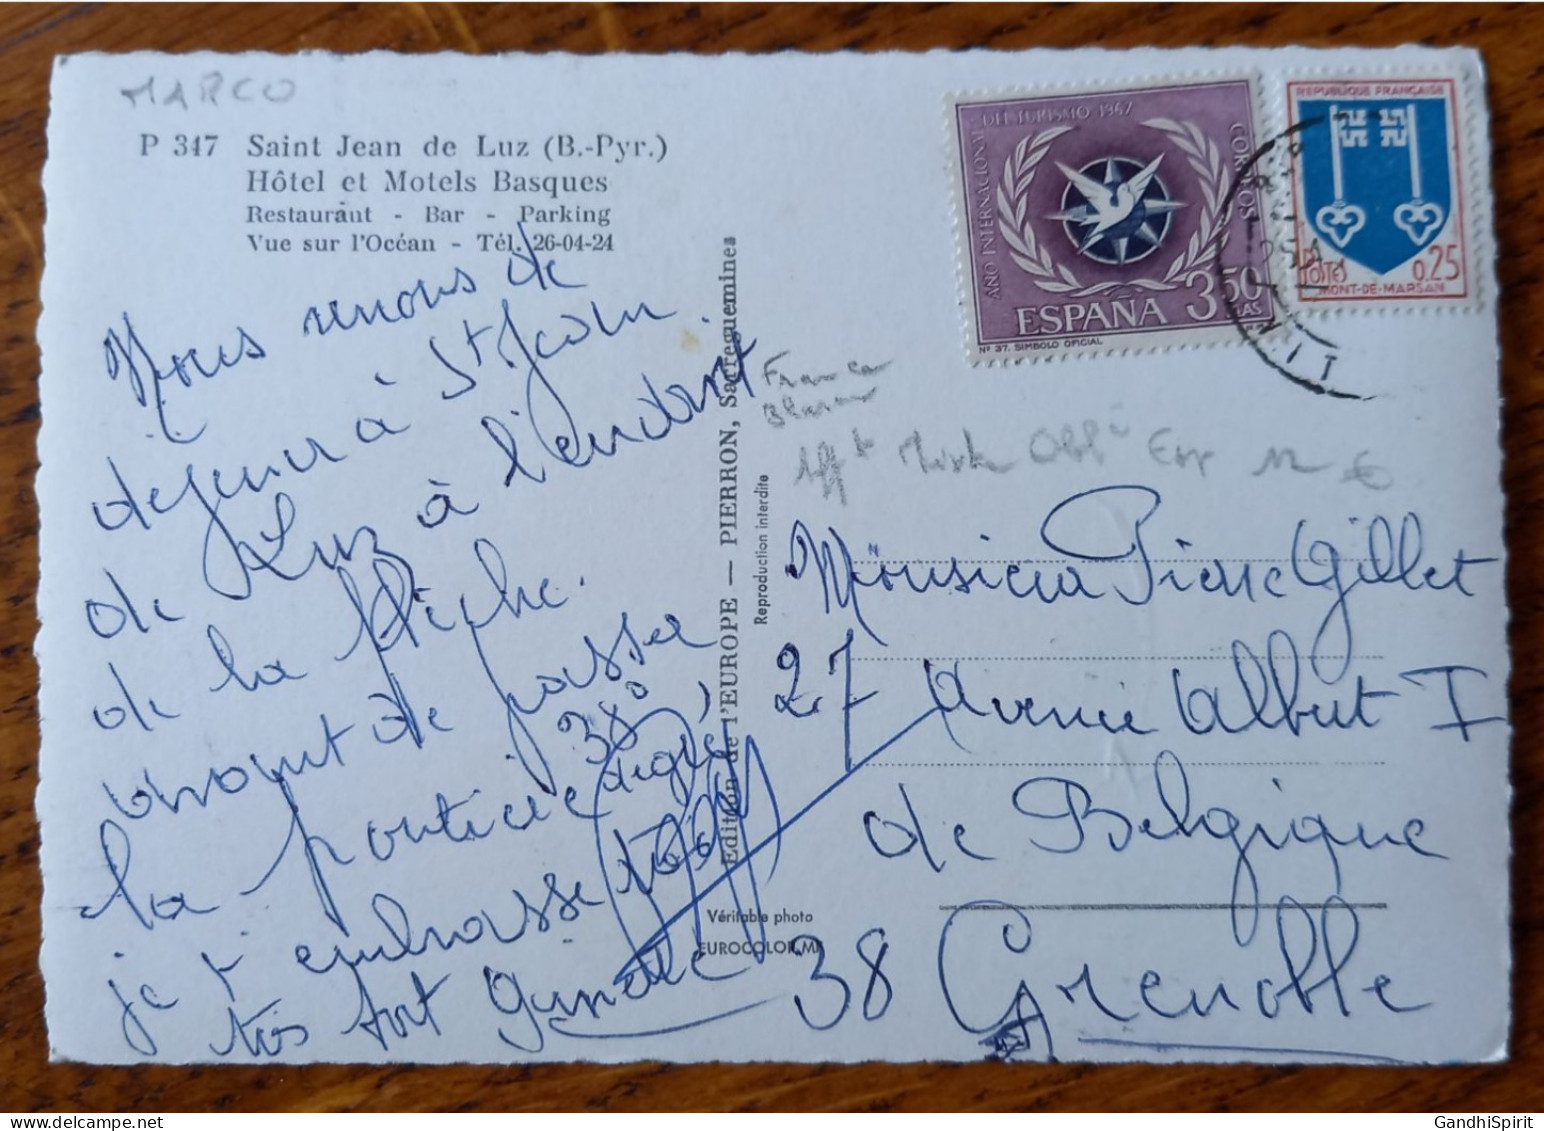 MARCO
P 347 Saint Jean de Luz (B.-Pyr.)
Hôtel et Motels Basques
Restaurant - Bar - Parking
Vue sur l'Océan - Tél. 26-04-24
Nous venons de
dejeuner à St Jean
de Luz à l'endroit
de la flèche.
avant de passer
la frontière 38°,
je t'embrasse
très fort
Edition de l'EUROPE — PIERRON, Sarreguemines
Reproduction interdite
Véritable photo
EUROCOLOR
AÑO INTERNACIONAL DEL TURISMO 1967
CORREOS
ESPAÑA 3,50 PTAS
Nº 37. SIMBOLO OFICIAL
REPUBLIQUE FRANÇAISE
POSTES 0,25
MONT-DE-MARSAN
Afft Mixte Oblé
Monsieur Pierre Gillet
27 Avenue Albert I
de Belgique
38 Grenoble
GandhiSpirit